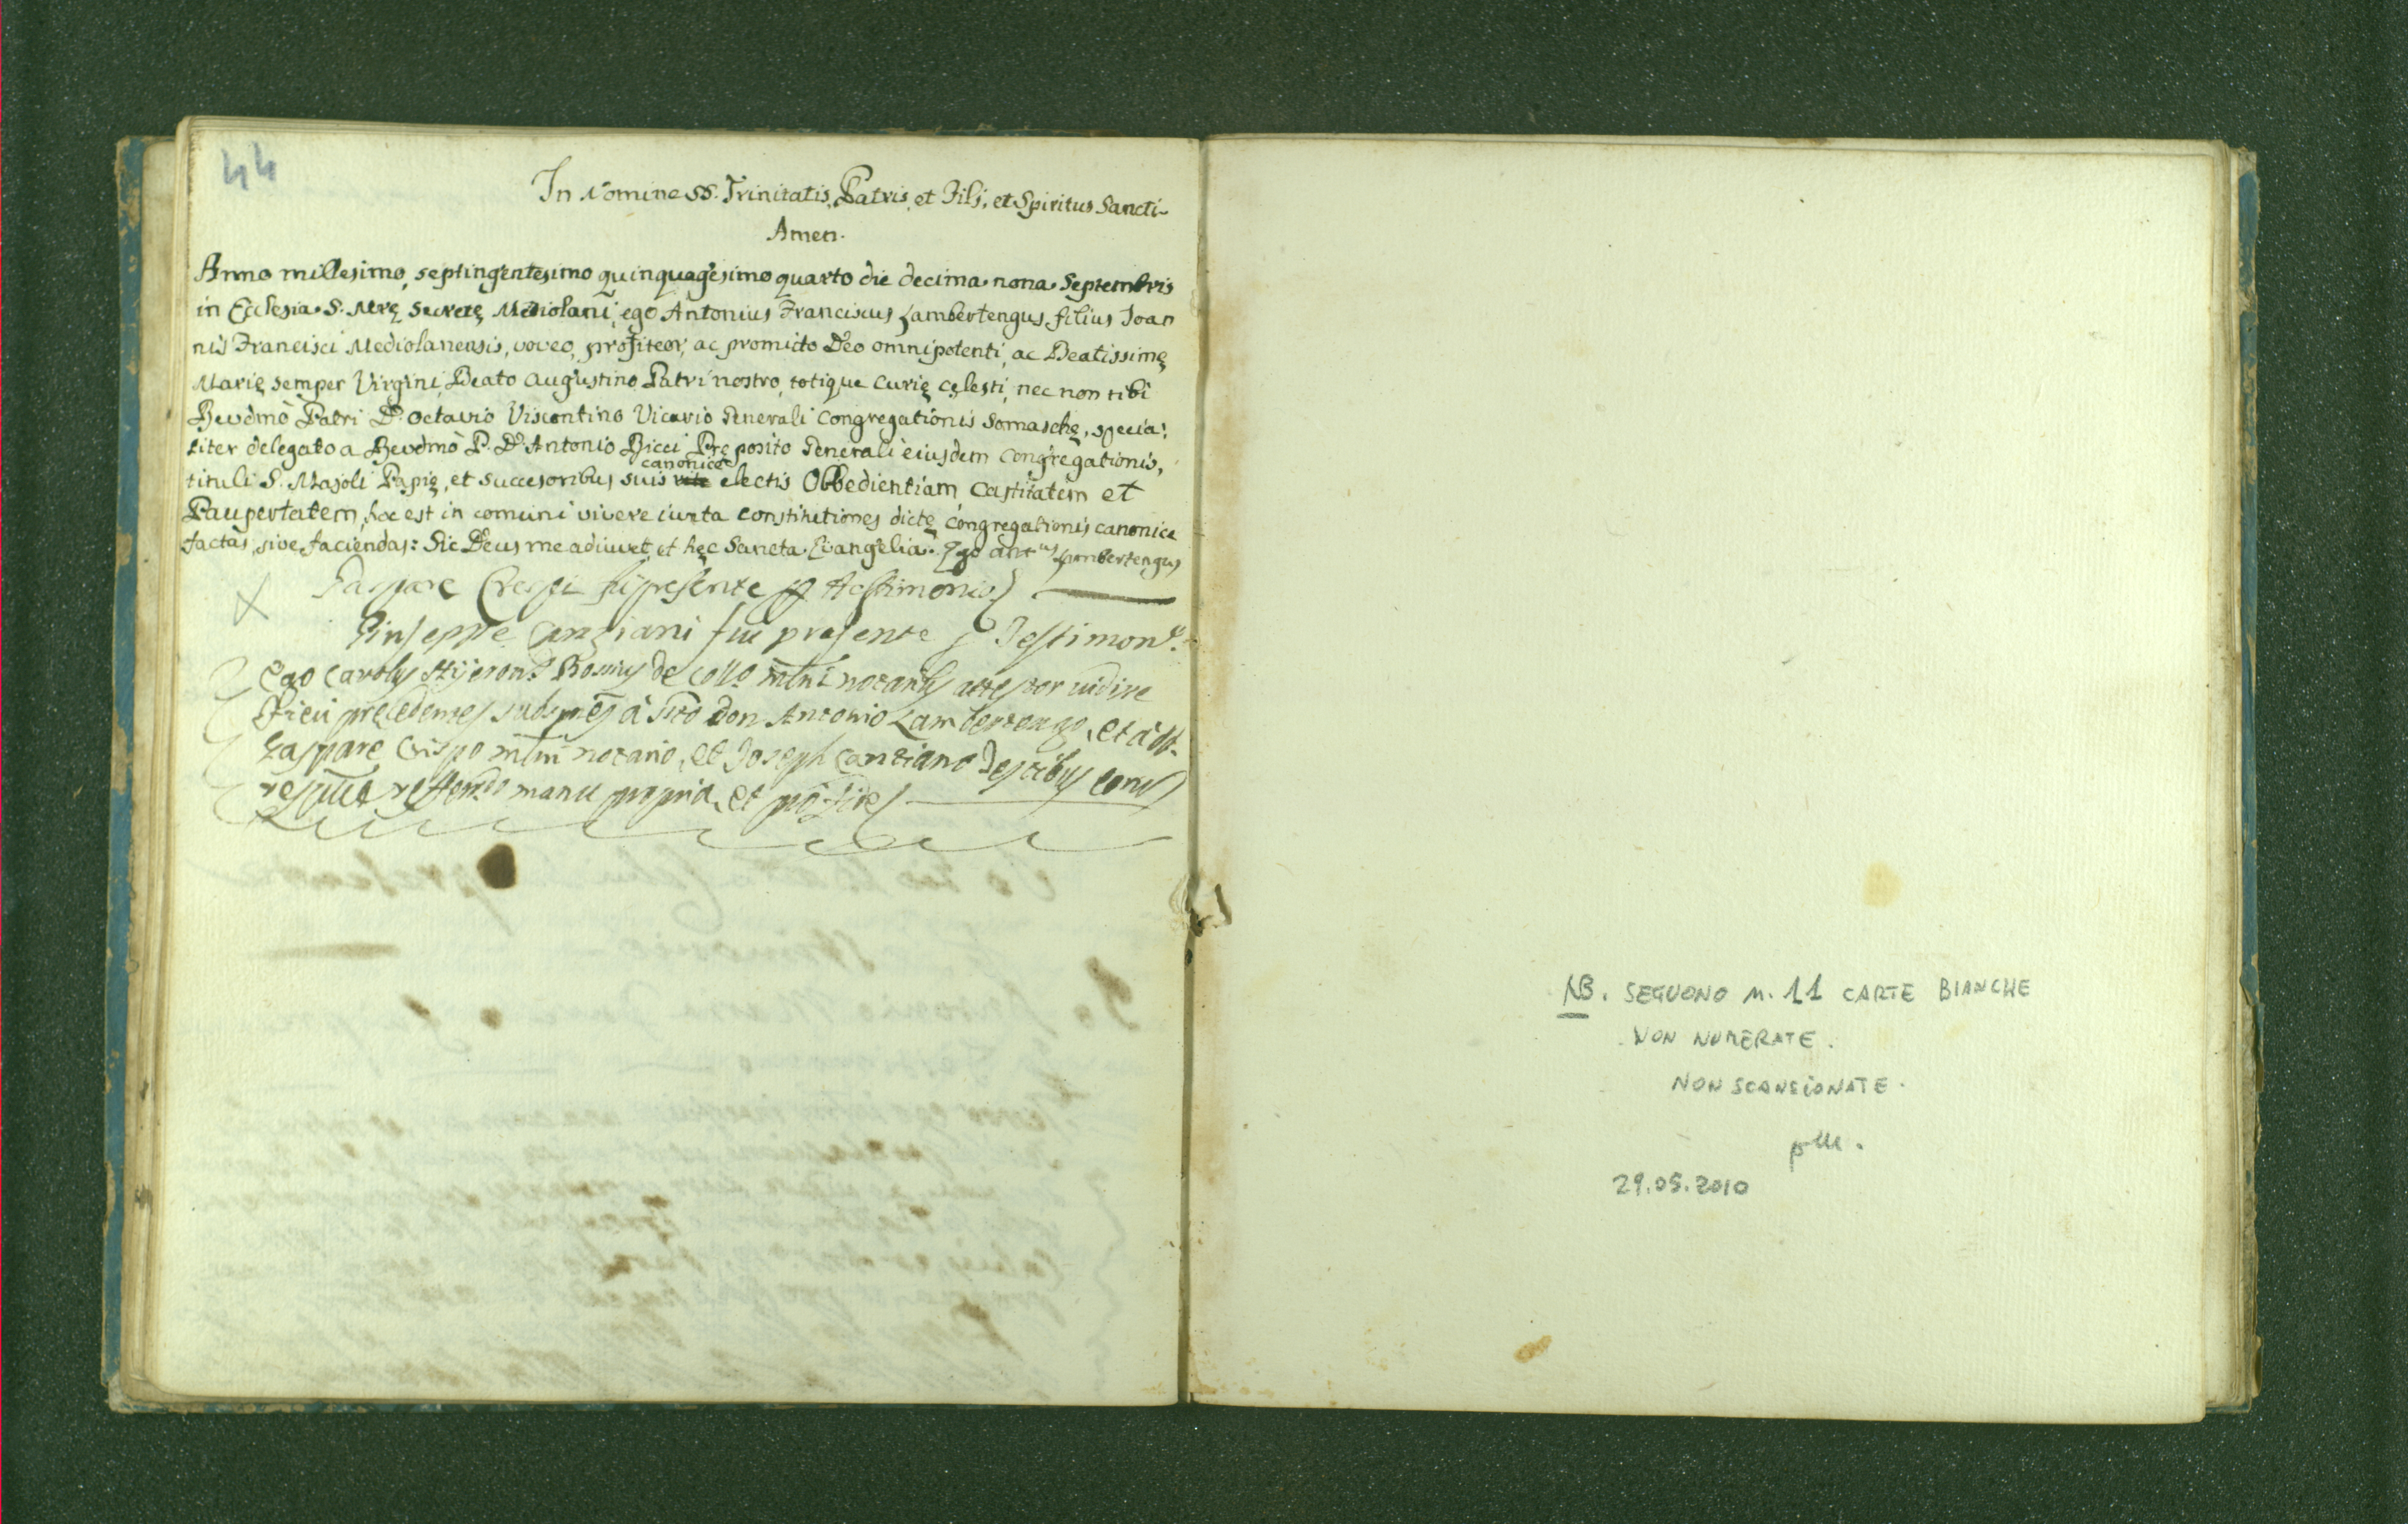 44
In Nomine SS. Trinitatis, Patris, et Filj, et Spiritus Sancti
Amen.
Anno millesimo, septingentesimo quinquagesimo quarto die decima nona Septembris
in Ecclesia S. Mrę Secretę Mediolani, ego Antonius Franciscus Lambertengus filius Joan
nis Francisci Mediolanensis, voveo, profiteor, ac promitto Deo omnipotenti, ac Beatissimę
Marię semper Virgini, Beato Augustino Patri nostro, totique Curię cęlesti, nec non tibi
Revdmo Patri D. Octavio Viscontino Vicario Generali Congregationis Somaschę, specia:
liter delegato a Revdmo P. D. Antonio Ricci Pręposito Generali eiusdem Congregationis,
canonice
tituli S. Majoli Papię, et succesoribus suis electis Obbedientiam Castitatem et
Paupertatem, hoc est in comuni vivere iuxta constitutiones dictę Congregationis canonice
factas, sive faciendas: Sic Deus me adiuvet, et hęc Sancta Evangelia. Ego Antus Lambertengus
Gaspare Crespi fui presente per testimonio
Giuseppe Canziani fui presente p Testimono.
Ego Carolus de Collo mlni notarius attestor vidisse
precedentes a don Antonio Lambertengo, et a
Gaspare Crispo mlni notario, et Joseph Canziano Testibus
manu propria, et
NB. SEGUONO N. 11 CARTE BIANCHE
NON NUMERATE.
NON SCANSIONATE.
29.05.2010